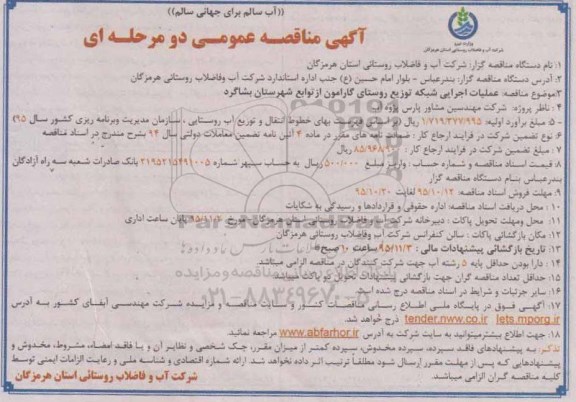 ((آب سالم برای جهانی سالم))
وزارت نیرو
شرکت آب و فاضلاب روستائی استان هرمزگان
آگهی مناقصه عمومی دو مرحله ای
۱: نام دستگاه مناقصه گزار: شرکت آب و فاضلاب روستائی استان هرمزگان
۲: آدرس دستگاه مناقصه گزار: بندرعباس - بلوار امام حسین (ع) جنب اداره استاندارد شرکت آب وفاضلاب روستائی هرمزگان
۳:موضوع مناقصه: عملیات اجرایی شبکه توزیع روستای گارامون ازتوابع شهرستان بشاگرد
۴ : ناظر پروژه: شرکت مهندسین مشاور پارس
۵ - مبلغ برآورد اولیه: ۱/۷۱۹/۳۷۷/۹۹۵ ریال بهای خطوط انتقال و توزیع آب روستایی ، سازمان مدیریت وبرنامه ریزی کشور سال ۹۵)
۶: نوع تضمین شرکت در فرایند ارجاع کار : ضمانت نامه های مقرر در ماده ۴ آئین نامه تضمین معاملات دولتی سال ۹۴ بشرح مندرج در اسناد مناقصه
۷ : مبلغ تضمین شرکت در فرایند ارجاع کار : ریال
۸: قیمت اسناد مناقصه و شماره حساب : واریز مبلغ ۵۰۰/۰۰۰ ریال به حساب سپهر شماره ۲۱۹۵۲۱۵۴۹۱۰۰۵ بانک صادرات شعبه سه راه آزادگان
بندرعباس بنام دستگاه مناقصه گزار
۹: مهلت فروش اسناد مناقصه: ۹۵/۱۰/۱۲ لغایت ۹۵/۱۰/۲۰
۱۰: محل دریافت اسناد مناقصه: اداره حقوقی و قراردادها و رسیدگی به شکایات
۱۱: محل ومهلت تحویل پاکات : دبیرخانه شرکت آب وفاضلاب روستائی استان هرمزگان پایان ساعت اداری
۱۲: مکان بازگشائی پاکات : سالن کنفرانس شرکت آب وفاضلاب روستائی هرمزگان
۱۳: تاریخ بازگشائی پیشنهادات مالی : ۹۵/۱۱/۳ ساعت ۱۰ صبح
۱۴ : دارا بودن حداقل پایه ۵ رشته آب جهت شرکت کنندگان در مناقصه الزامی میباشد
۱۵: حداقل تعداد مناقصه گران جهت بازگشایی پیشنهادات تحویل پاکات میباشد
۱۶: سایر جزئیات و شرایط در اسناد مناقصه درج شده است
۱۷: آگهی فوق در پایگاه ملی اطلاع رسانی مناقصات کشور و سایت مناقصه و مزایده شرکت مهندسی آبفای کشور به آدرس
tender.nww.co.ir iets.mporg.ir درج خواهد شد.
۱۸: جهت اطلاع بیشترمیتوانید به سایت شرکت به آدرس www.abfarhor.ir مراجعه نمائید.
تذکر: به پیشنهادهای فاقد سپرده، سپرده مخدوش، سپرده کمتر از میزان مقرر، چک شخصی و نظایر آن و یا فاقد امضاء، مشروط، مخدوش و
پیشنهادهایی که پس از مهلت مقرر ارسال شود مطلقا ترتیب اثر داده نخواهد شد. ارائه شماره اقتصادی و شناسه ملی و رعایت الزامات ایمنی توسط
کلیه مناقصه گران الزامی میباشد.
شرکت آب و فاضلاب روستائی استان هرمزگان